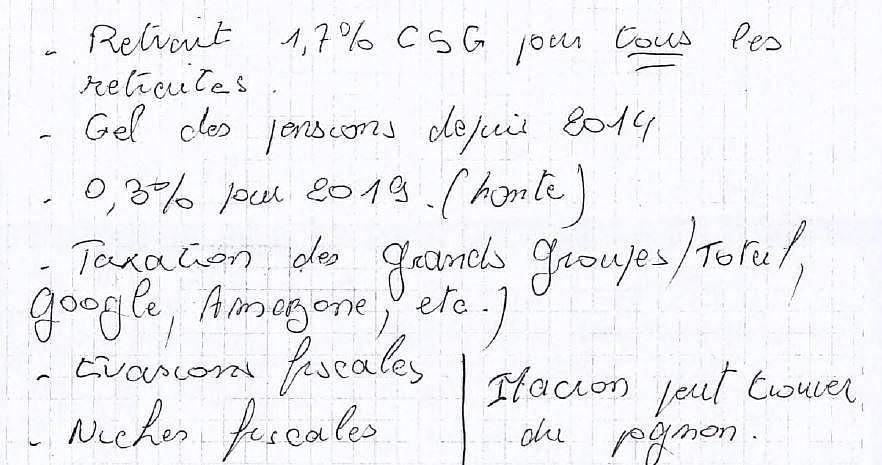 - Retrait 1,7% CSG pour tous les
retraités.
- Gel des pensions depuis 2014
- 0,3% pour 2019. (honte)
- Taxation des grands groupes (Total,
Google, Amazone, etc.)
- Evasions fiscales
- Niches fiscales
Macron peut trouver
du pognon.